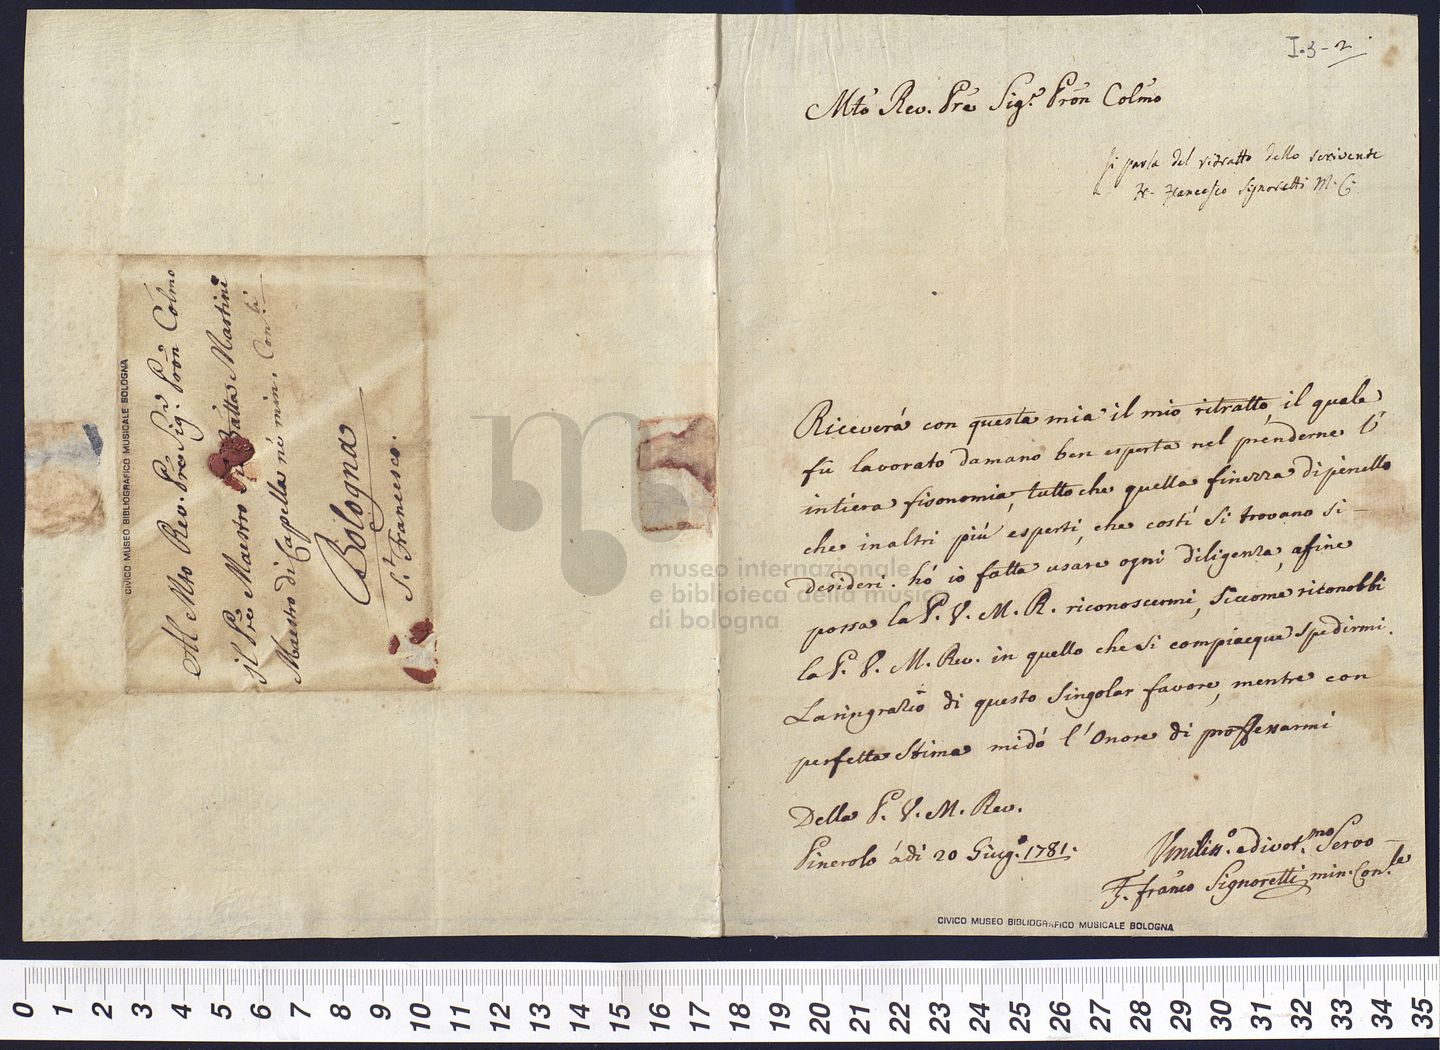 Al Mto Rev. Pre Sig.r Pron Colmo
il Pre Maestro Batta Martini
Maestro di Capella ne min. Con.li
Bologna
S.t Francesco.
CIVICO MUSEO BIBLIOGRAFICO MUSICALE BOLOGNA
I.3-2
Mto Rev. Pre Sig.r Pron Colmo
si parla del ritratto dello scrivente
Fr. Francesco Signoretti M. C.
Riceverá con questa mia il mio ritratto, il quale
fù lavorato damano ben esperta nel prenderne l'
intiera fisonomia, tutto che quella finezza di penello
che inaltri piú esperti, che costí si trovano si
desideri. hó io fatta usare ogni diligenza, afine
possa la P. V. M. R. riconoscermi, siccome riconobbi
la P. V. M. Rev. in quello che si compiacque spedirmi.
La ringrazio di questo singolar favore, mentre con
perfetta stima midó l'onore di proffessarmi
Della P. V. M. Rev.
Pinerolo ádi 20 Giug.o 1781.
Umiliss.o e divot.mo Servo
F. Franco Signoretti min. Con.le
CIVICO MUSEO BIBLIOGRAFICO MUSICALE BOLOGNA
museo internazionale
e biblioteca della musica
di bologna
0 1 2 3 4 5 6 7 8 9 10 11 12 13 14 15 16 17 18 19 20 21 22 23 24 25 26 27 28 29 30 31 32 33 34 35